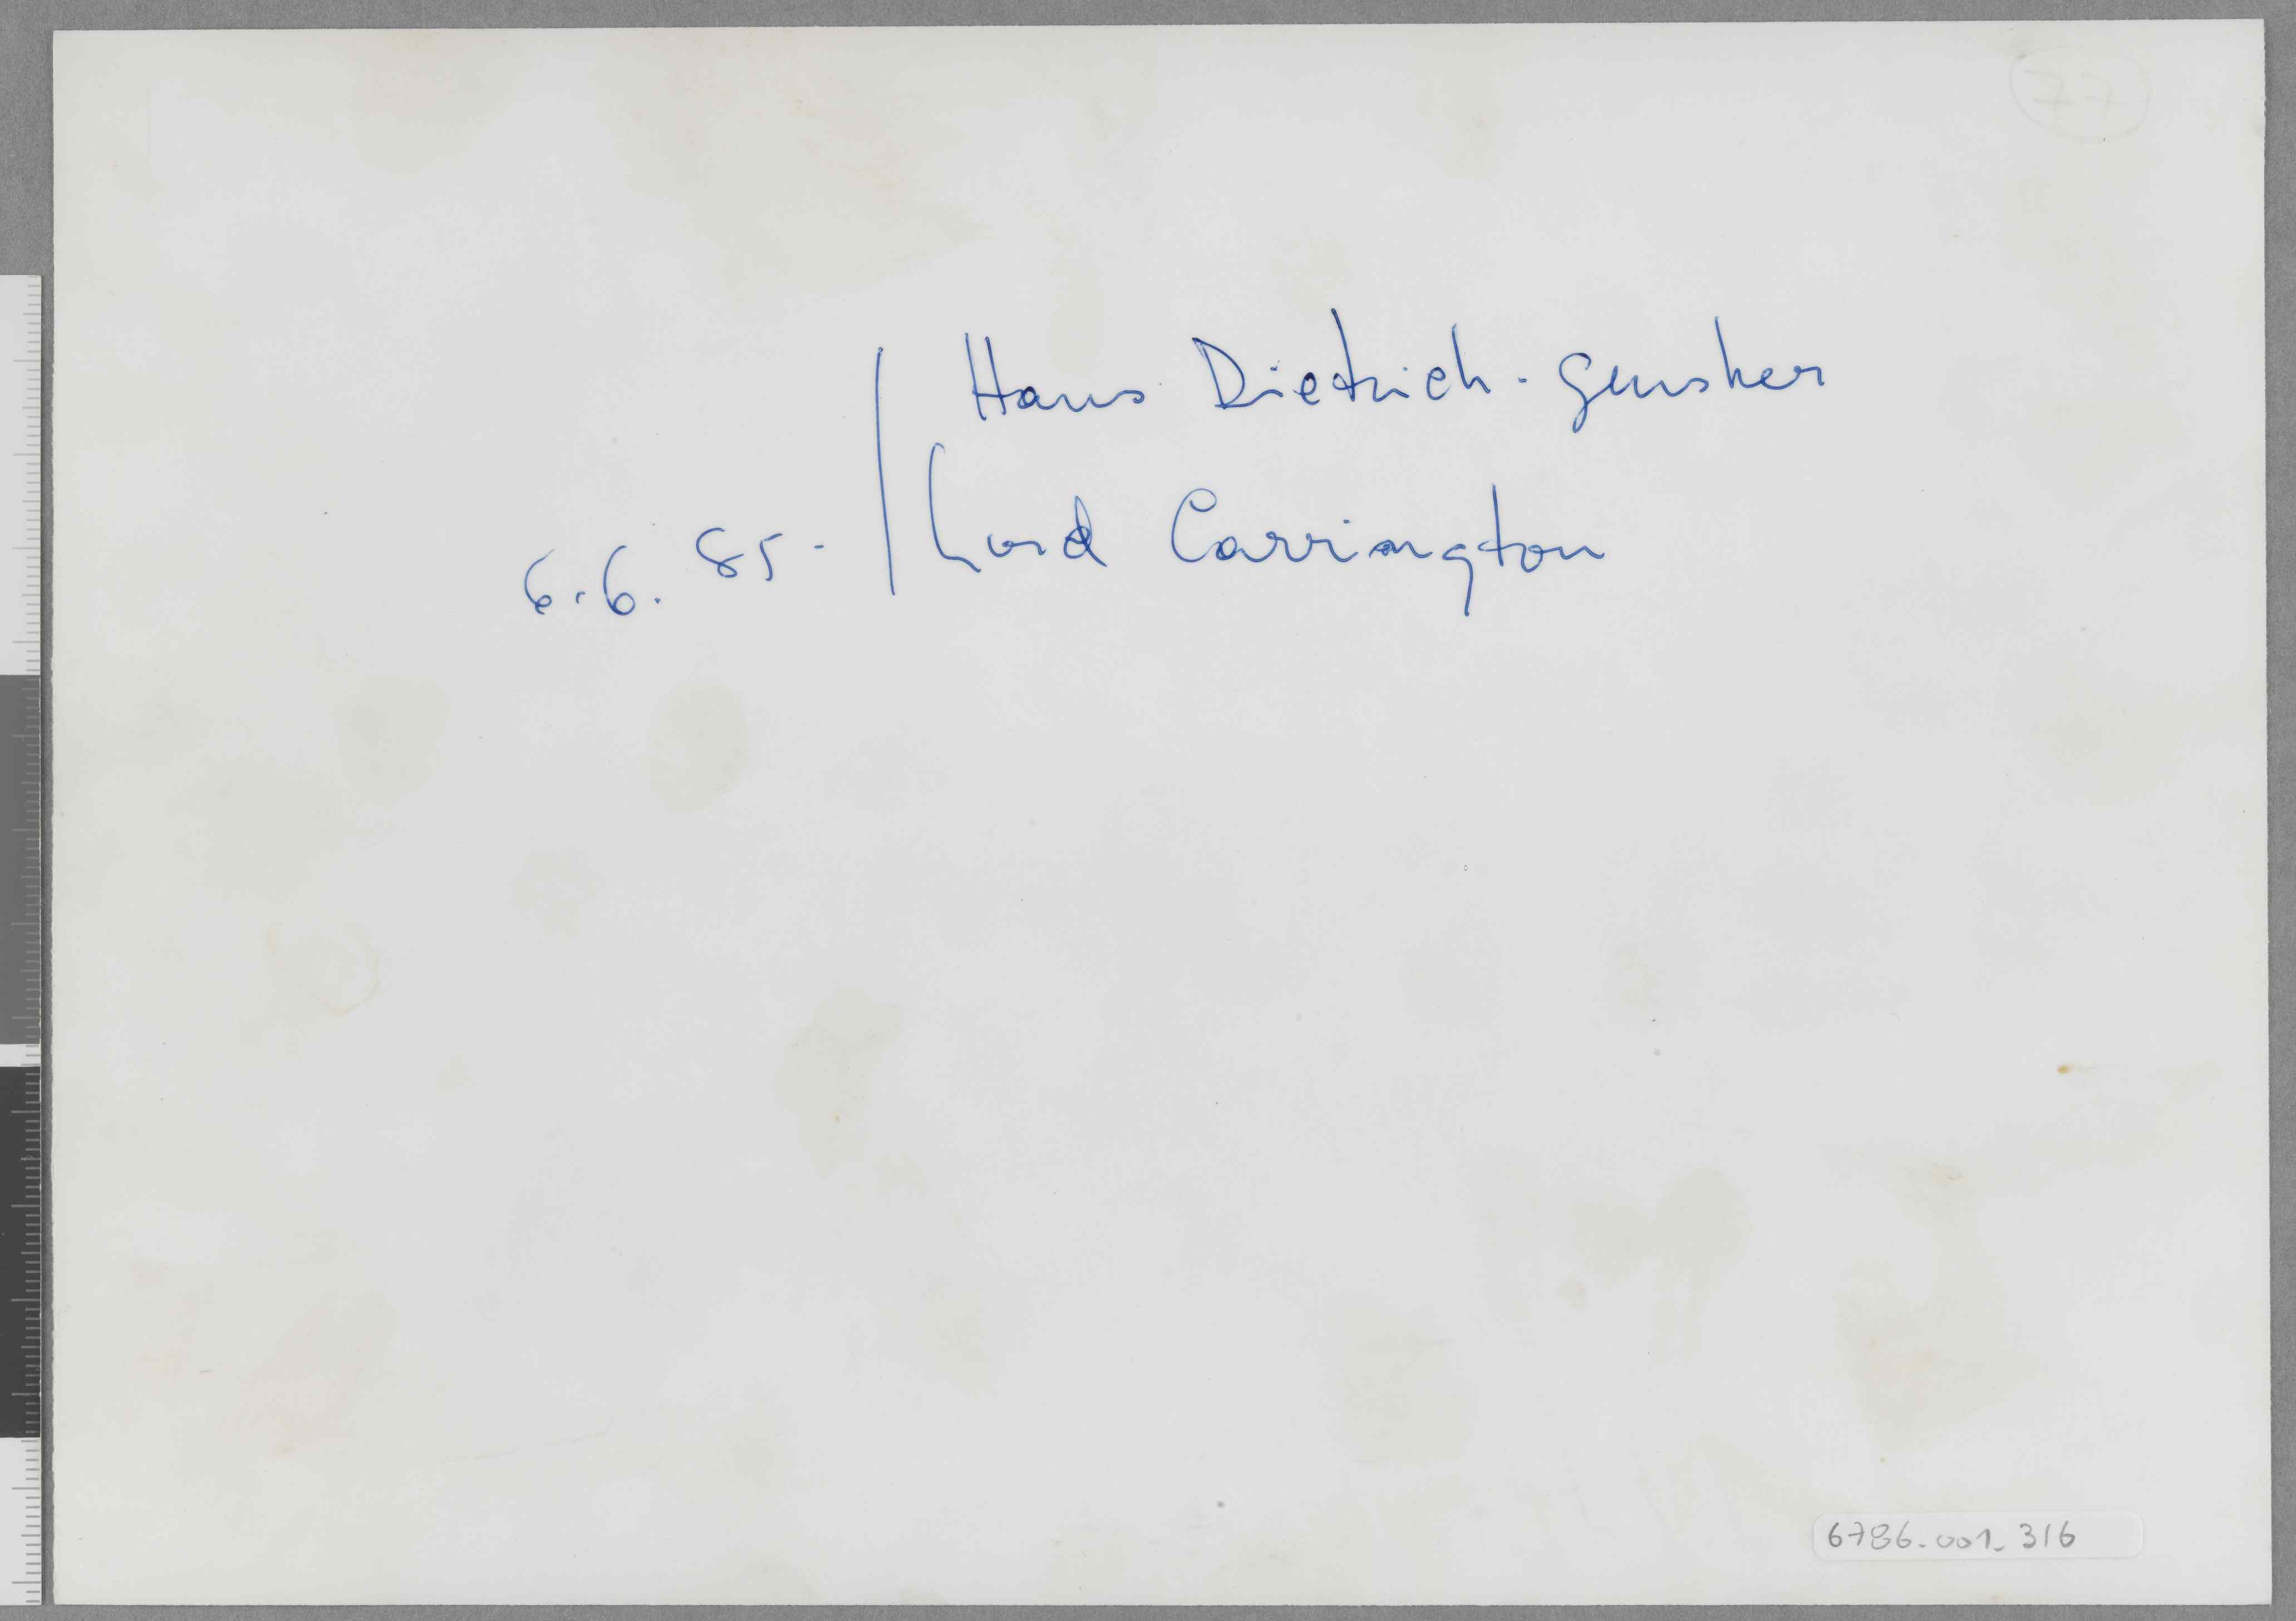 77
Hans Dietrich-Gensher
6.6.85 - / Lord Carrington
6786.001_316